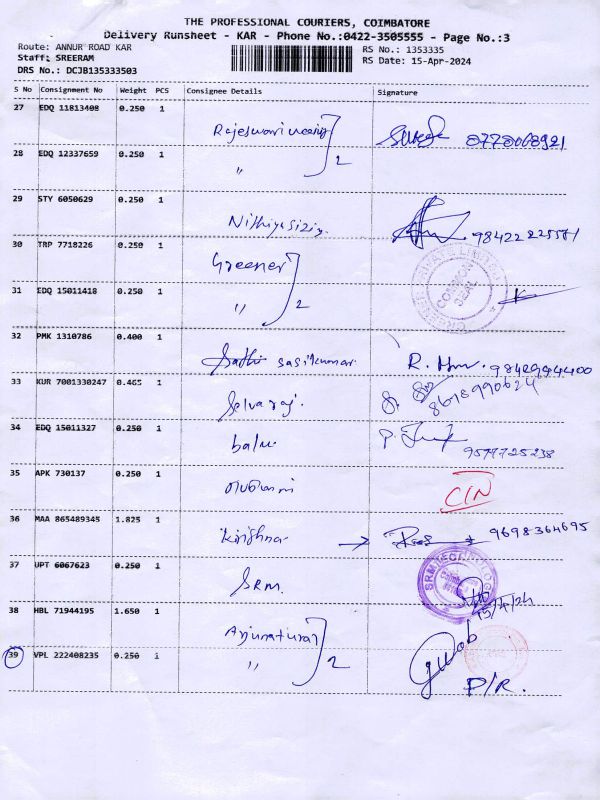 THE PROFESSIONAL COURIERS, COIMBATORE
Delivery Runsheet - KAR - Phone No.:0422-3505555 - Page No.:3
Route: ANNUR ROAD KAR RS No.: 1353335
Staff: SREERAM RS Date: 15-Apr-2024
DRS No.: DCJB135333503
S No Consignment No Weight PCS Consignee Details Signature
27 EDQ 11813408 0.250 1
Rajeswari
28 EDQ 12337659 0.250 1
" 2
29 STY 6050629 0.250 1
98422 225581
30 TRP 7718226 0.250 1
Greener
COMMON SEAL
31 EDQ 15011418 0.250 1
" 2
32 PMK 1310786 0.400 1
Sathi sasikumar R.
33 KUR 7001330247 0.465 1
Selvaraj. 8618990624
34 EDQ 15011327 0.250 1
balu P. 9577725238
35 APK 730137 0.250 1
CIN
36 MAA 865489345 1.825 1
Krishna 9698364695
37 UPT 6067623 0.250 1
SRM. 15/4/24
38 HBL 71944195 1.650 1
Arjunatural
39 VPL 222408235 0.250 1
" 2
P/R.